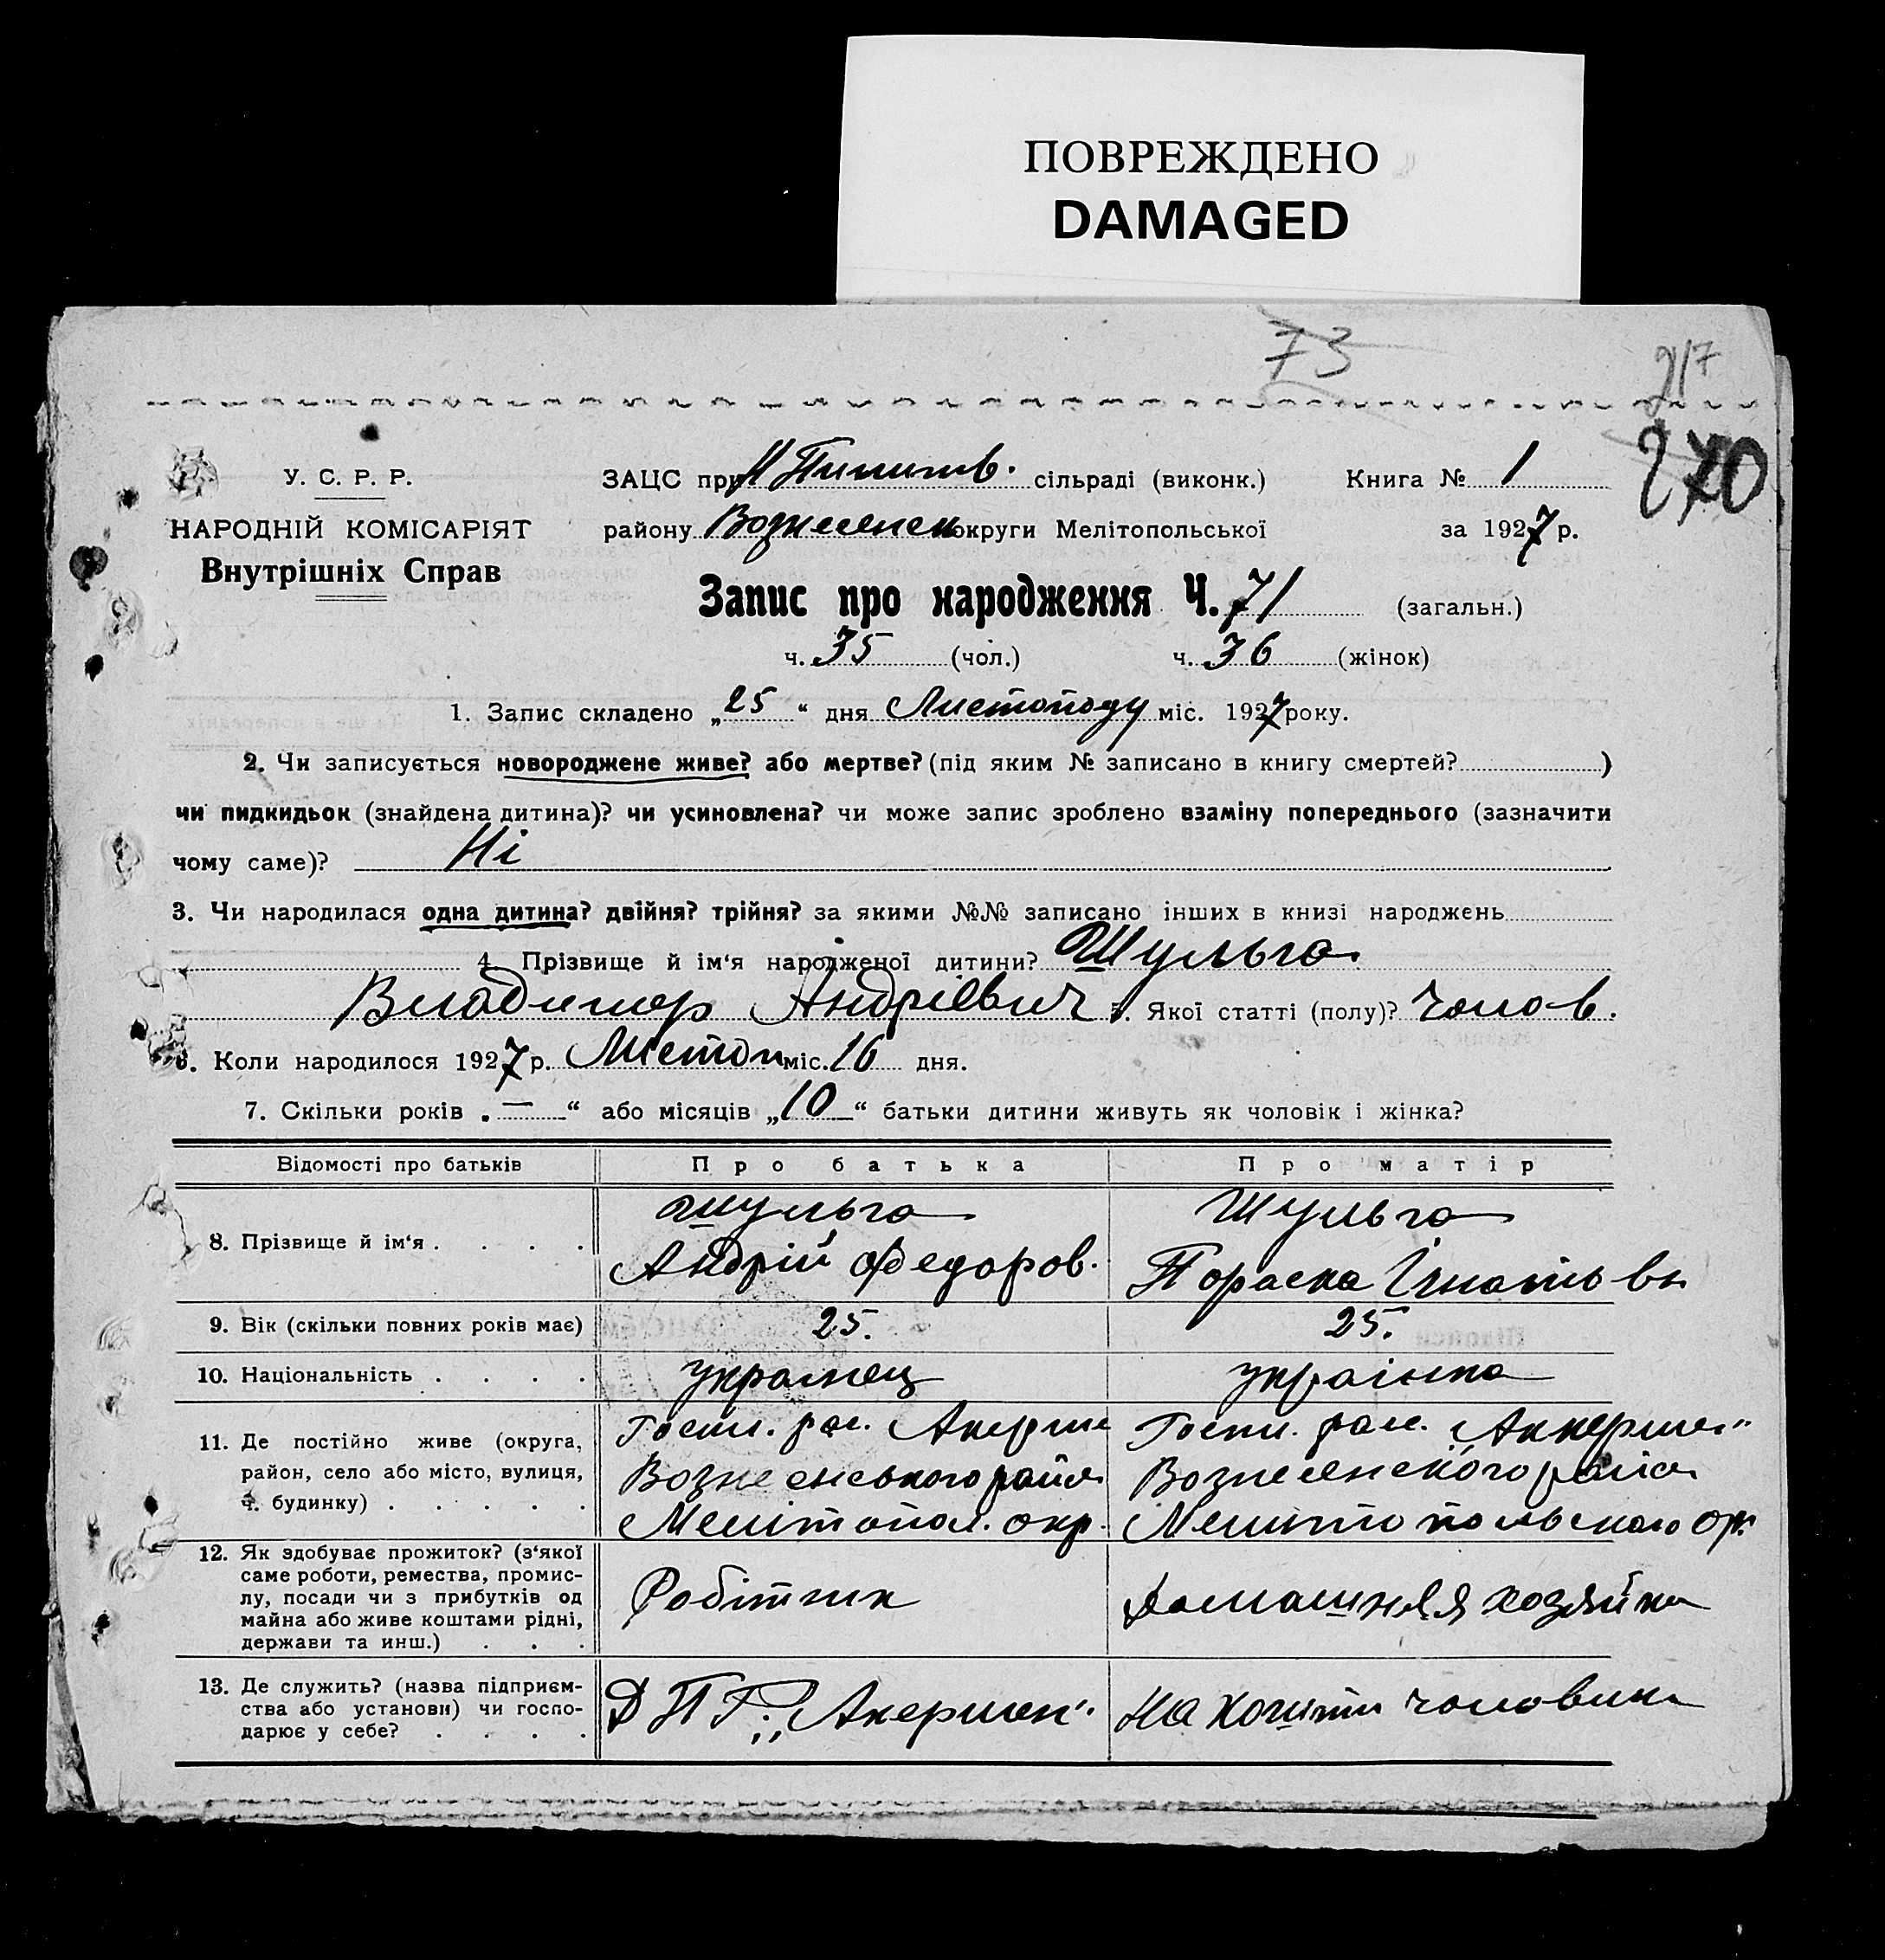 ПОВРЕЖДЕНО
DAMAGED
73
217
270
У. С. Р. Р.
НАРОДНІЙ КОМІСАРІЯТ
Внутрішніх Справ
ЗАЦС при сільраді (виконк.) Книга № 1
району Вознесенск округи Мелітопольської за 1927 р.
Запис про народження Ч. 71 (загальн.)
ч. 35 (чол.) ч. 36 (жінок)
1. Запис складено „25“ дня Листопаду міс. 1927 року.
2. Чи записується новороджене живе? або мертве? (під яким № записано в книгу смертей? )
чи пидкидьок (знайдена дитина)? чи усиновлена? чи може запис зроблено взаміну попереднього (зазначити
чому саме)? Ні
3. Чи народилася одна дитина? двійня? трійня? за якими №№ записано інших в книзі народжень
4. Прізвище й ім‘я народженої дитини? Шульга
Владимер Андрієвич 5. Якої статті (полу)? Чолов.
6. Коли народилося 1927 р. Листоп міс. 16 дня.
7. Скільки років „—“ або місяців „10“ батьки дитини живуть як чоловік і жінка?
Відомості про батьків Про батька Про матір
8. Прізвище й ім‘я . . . . Шульга Андрій Федоров. Шульга Параска Ігнатівн
9. Вік (скільки повних років має) 25. 25.
10. Національність . . . . украінец украінка
11. Де постійно живе (округа,
район, село або місто, вулиця,
ч. будинку) . . . . .
Госп. рал. Акерме
Вознесенського района
Мелітопол. окр.
Госп. рал. „Аккермен“
Вознесенского района
Мелитопольского окр.
12. Як здобуває прожиток? (з‘якої
саме роботи, ремества, промис-
лу, посади чи з прибутків од
майна або живе коштами рідні,
держави та инш.) . . .
Робітник
Домашняя хозяйка
13. Де служить? (назва підприєм-
ства або установи) чи госпо-
дарює у себе? . . . .
ДПГ. „Акермен“
На кошти чоловика